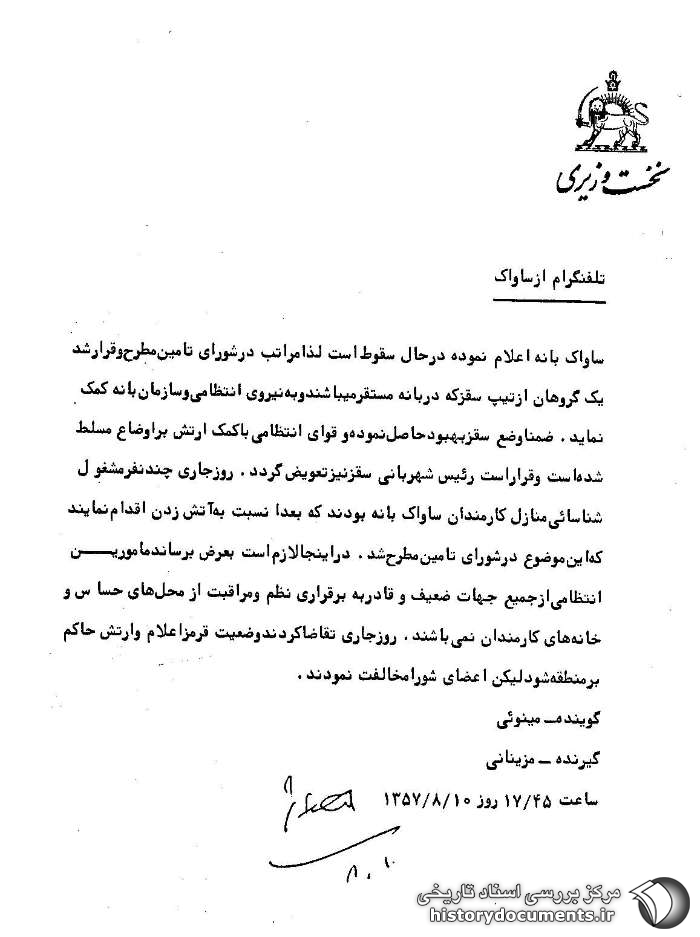 نخست وزیری
تلفنگرام از ساواک
ساواک بانه اعلام نموده درحال سقوط است لذا مراتب در شورای تامین مطرح و قرار شد
یک گروهان از تیپ سقز که در بانه مستقر میباشند و به نیروی انتظامی و سازمان بانه کمک
نماید . ضمنا وضع سقز بهبود حاصل نموده و قوای انتظامی با کمک ارتش بر اوضاع مسلط
شده است و قرار است رئیس شهربانی سقز نیز تعویض گردد . روز جاری چند نفر مشغول
شناسائی منازل کارمندان ساواک بانه بودند که بعدا نسبت به آتش زدن اقدام نمایند
که این موضوع در شورای تامین مطرح شد . در اینجا لازم است بعرض برساند مامورین
انتظامی از جمیع جهات ضعیف و قادر به برقراری نظم ومراقبت از محل‌های حساس و
خانه‌های کارمندان نمی باشند . روز جاری تقاضا کردند وضعیت قرمز اعلام و ارتش حاکم
بر منطقه شود لیکن اعضای شورا مخالفت نمودند .
گوینده ــ مینوئی
گیرنده ــ مزینانی
ساعت ۱۷/۴۵ روز ۱۳۵۷/۸/۱۰
۸ . ۱۰
مرکز بررسی اسناد تاریخی
historydocuments.ir